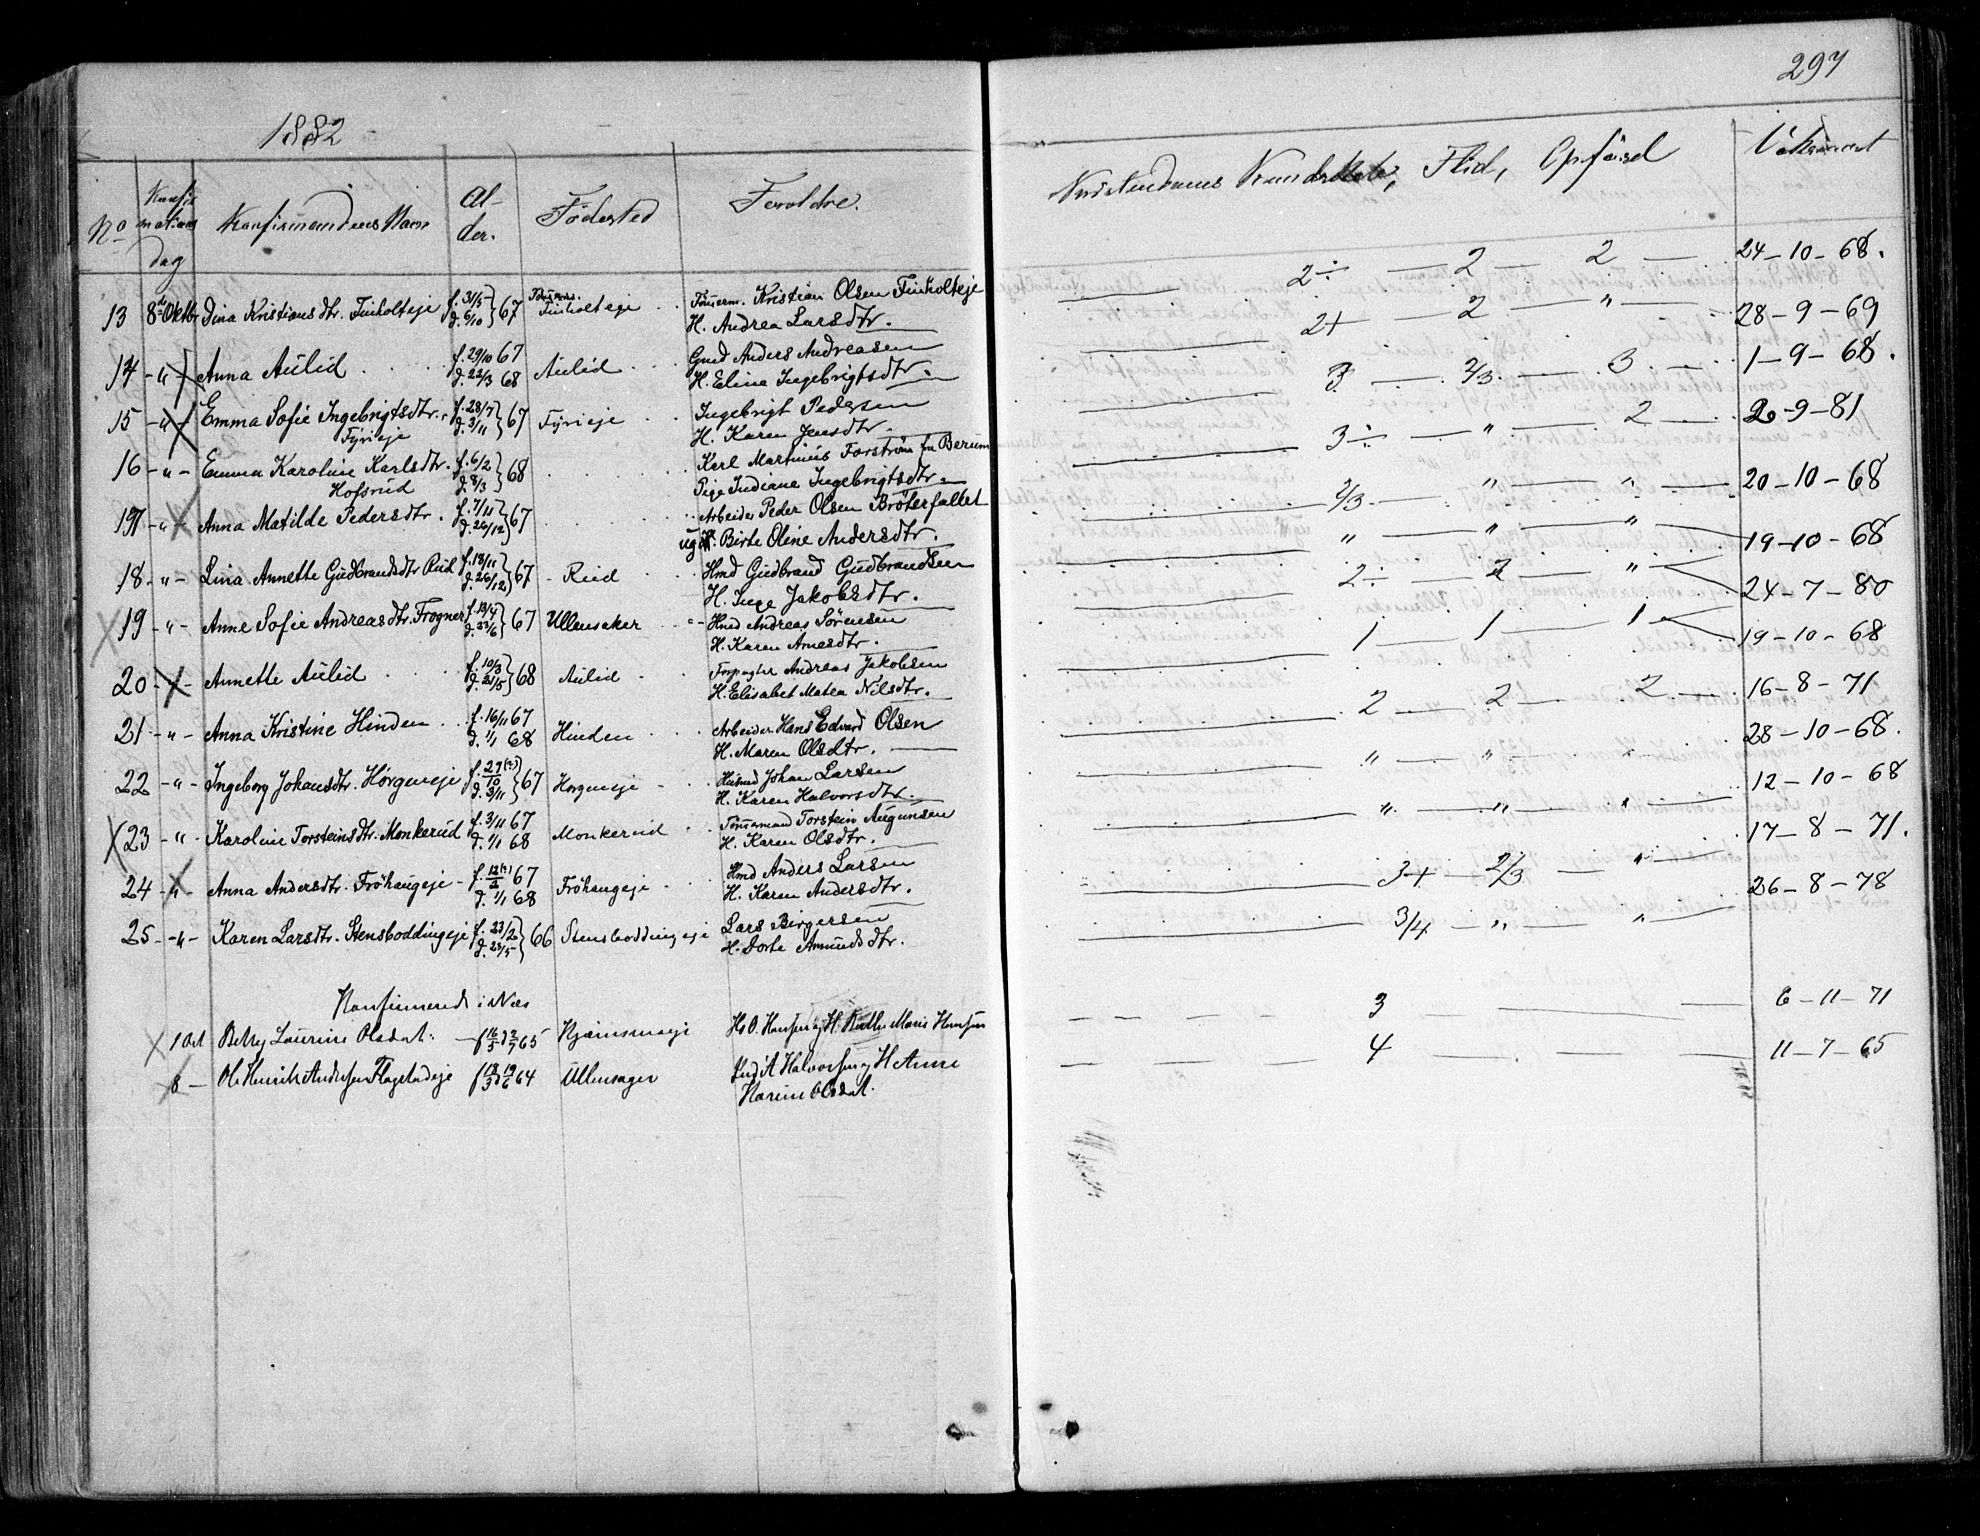 297
1882
No Konfirmations dag Konfirmandens Navn Alder. Födested Forældre. Kristendoms Kundskab, Flid, Opförsel Vaksineret
13 8de Oktbr Dina Kristiansdtr. Finholteje f. 31/5 d. 6/10 } 67 Finholteje Tömerm. Kristian Olsen Finholteje H. Andrea Larsdtr. 2÷ 2 2 24-10-68.
14 -"- Anna Aulid f. 29/10 67 d. 22/3 68 Aulid Gmd Anders Andreasen H. Eline Ingebrigtsdtr. 2+ 2 " 28-9-69
15 -"- Emma Sofie Ingebrigtsdtr. Fyrieje f. 28/7 d. 3/11 } 67 Fyrieje Ingebrigt Pedersen H. Karen Jensdtr. 3 2/3 3 1-9-68.
16 -"- Emma Karoline Karlsdtr. Hofsrud f. 6/2 d. 8/3 } 68 Karl Martinius Forström fra Berum Pige Indiane Ingebrigtsdtr. 3÷ " 2 26-9-81
17 -"- Anna Matilde Pedersdtr. f. 7/11 d. 26/12 } 67 Arbeider Peder Olsen Bröterfallet ugift Birte Oline Andersdtr. 2/3 " " 20-10-68
18 -"- Lina Annette Gudbrandsdtr Rud f. 13/11 d. 26/12 } 67 Rud Hmd Gudbrand Gudbrandsen H. Inge Jakobsdtr. " " " 19-10-68
19 -"- Anne Sofie Andreasdtr. Frogner f. 13/4 d. 23/6 } 67 Ullensaker Hmd Andreas Sörensen H. Karen Arnesdtr. 2÷ 2 " 24-7-80
20 -"- Annette Aulid f. 10/3 d. 21/5 } 68 Aulid Forpagter Andreas Jakobsen H. Elisabet Matea Nilsdtr. 1 1 1 19-10-68
21 -"- Anna Kristine Hinden f. 16/11 67 d. 1/1 68 Hinden Arbeider Hans Edvard Olsen H. Maren Olsdtr. 2 2 2 16-8-71
22 -"- Ingeborg Johansdtr. Horgeneje f. 27(?)/10 d. 3/11 } 67 Horgeneje Husmd Johan Larsen H. Karen Halvorsdtr. " " " 28-10-68.
23 -"- Karoline Torsteinsdtr. Monkerud f. 3/11 67 d. 1/1 68 Monkerud Tömermand Torstein Augunsen H. Karen Olsdtr. " " " 12-10-68
24 -"- Anna Andersdtr. Fröhaugeje f. 12(?)/2 67 d. 1/1 68 Fröhaugeje Hmd Anders Larsen H. Karen Andersdtr. 3+ 2/3 " 17-8-71.
25 -"- Karen Larsdtr. Stensboddingeje f. 23/2 d. 23/5 } 66 Stensboddingeje Lars Birgersen H. Dorte Amundsdtr. 3/4 " " 26-8-78
Konfirmered i Næs
1 Okt Betsy Laurine Olsdat: f 16/5 d 2/7 65 Hs O. Hansen og H. Kathr Marie Hansen 3 6-11-71
8 — Ole Henrik Andersen Flagstadeje f 18/3 d 19/6 64 Ullensager A Halvorsen og H Anne Karine Olsdat. 4 11-7-65